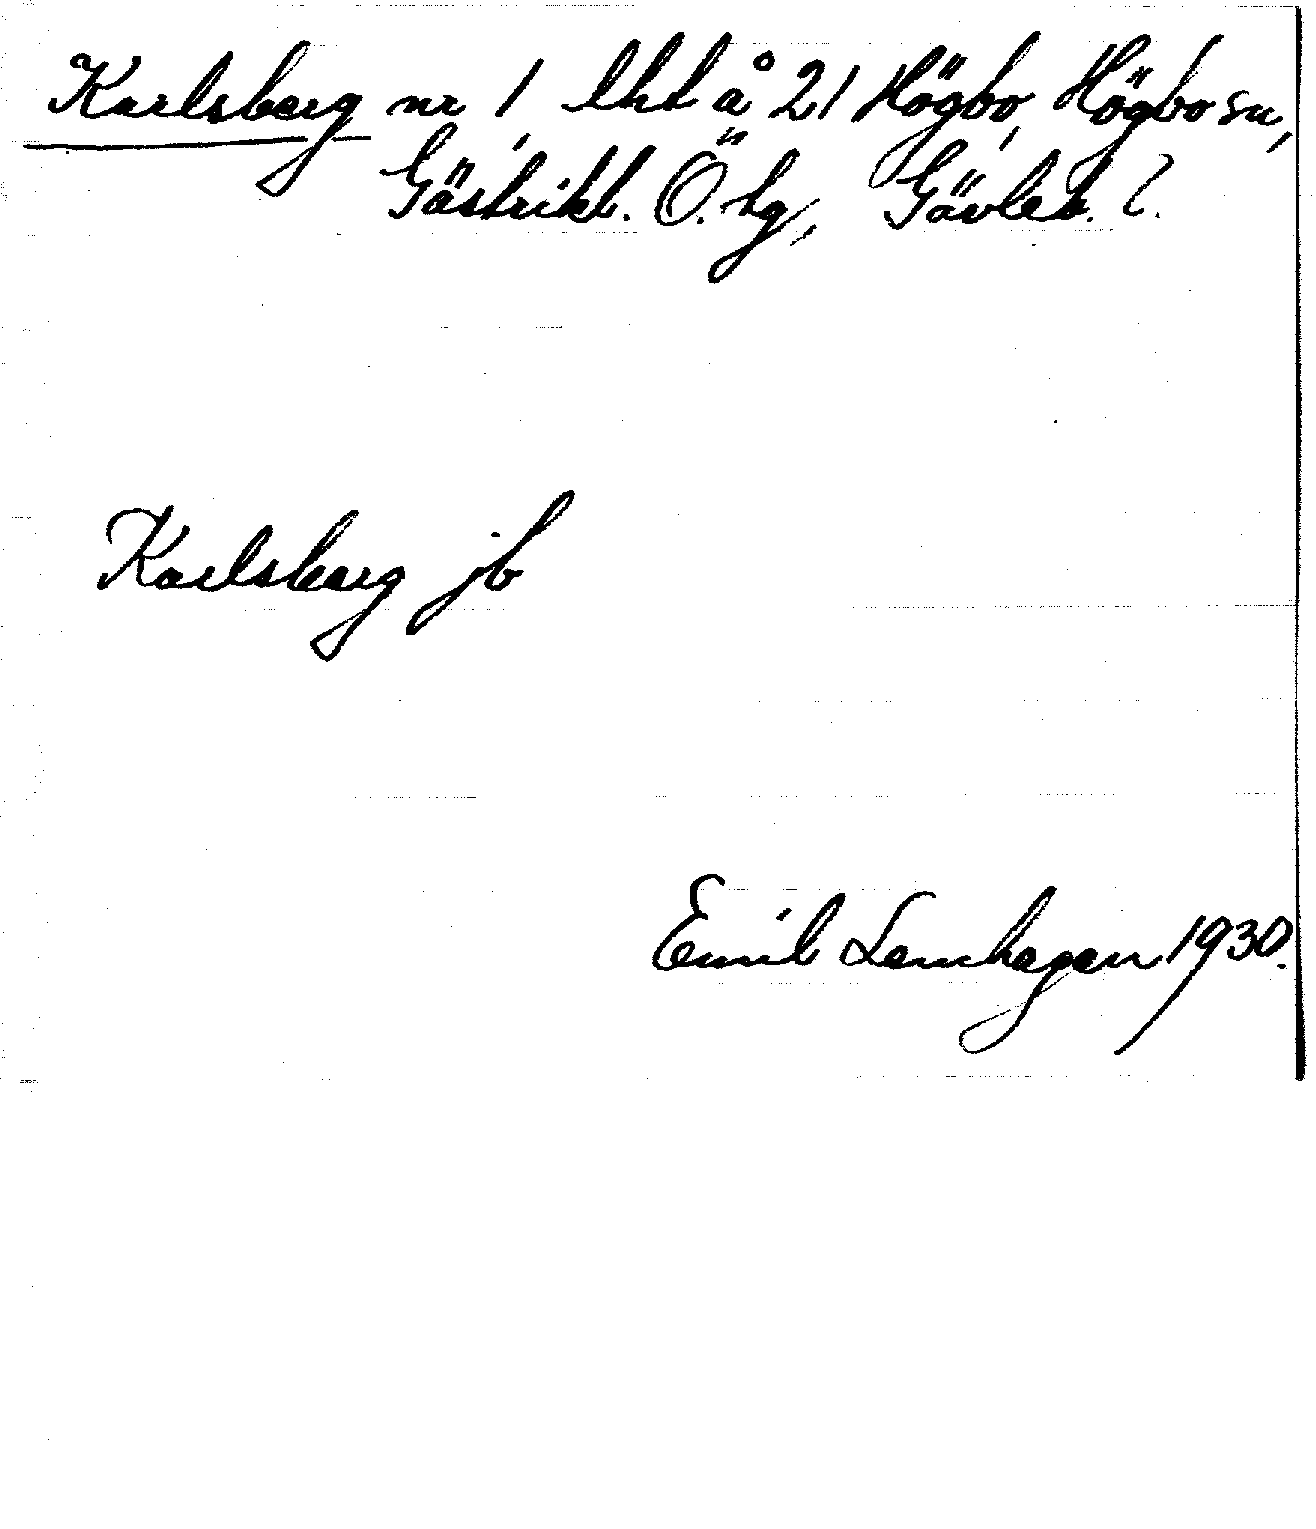 Karlsberg nr 1, lht å 21 Högbo, Högbo sn,
Gästrikl. Ö. hg, Gävleb. l.
Karlsberg jb
Emil Lemhagen 1930.